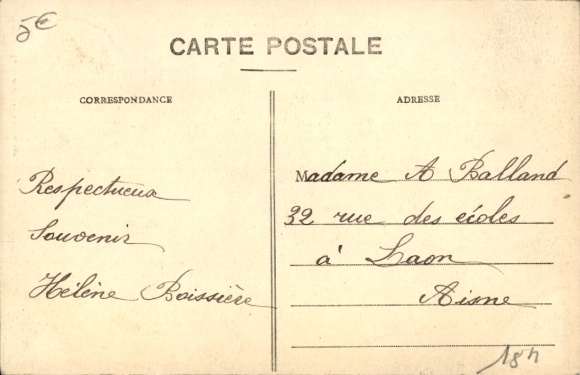 5€
CARTE POSTALE
CORRESPONDANCE
Respectueux
Souvenir
Hélène Boissière
ADRESSE
Madame A Balland
32 rue des écoles
à Laon
Aisne